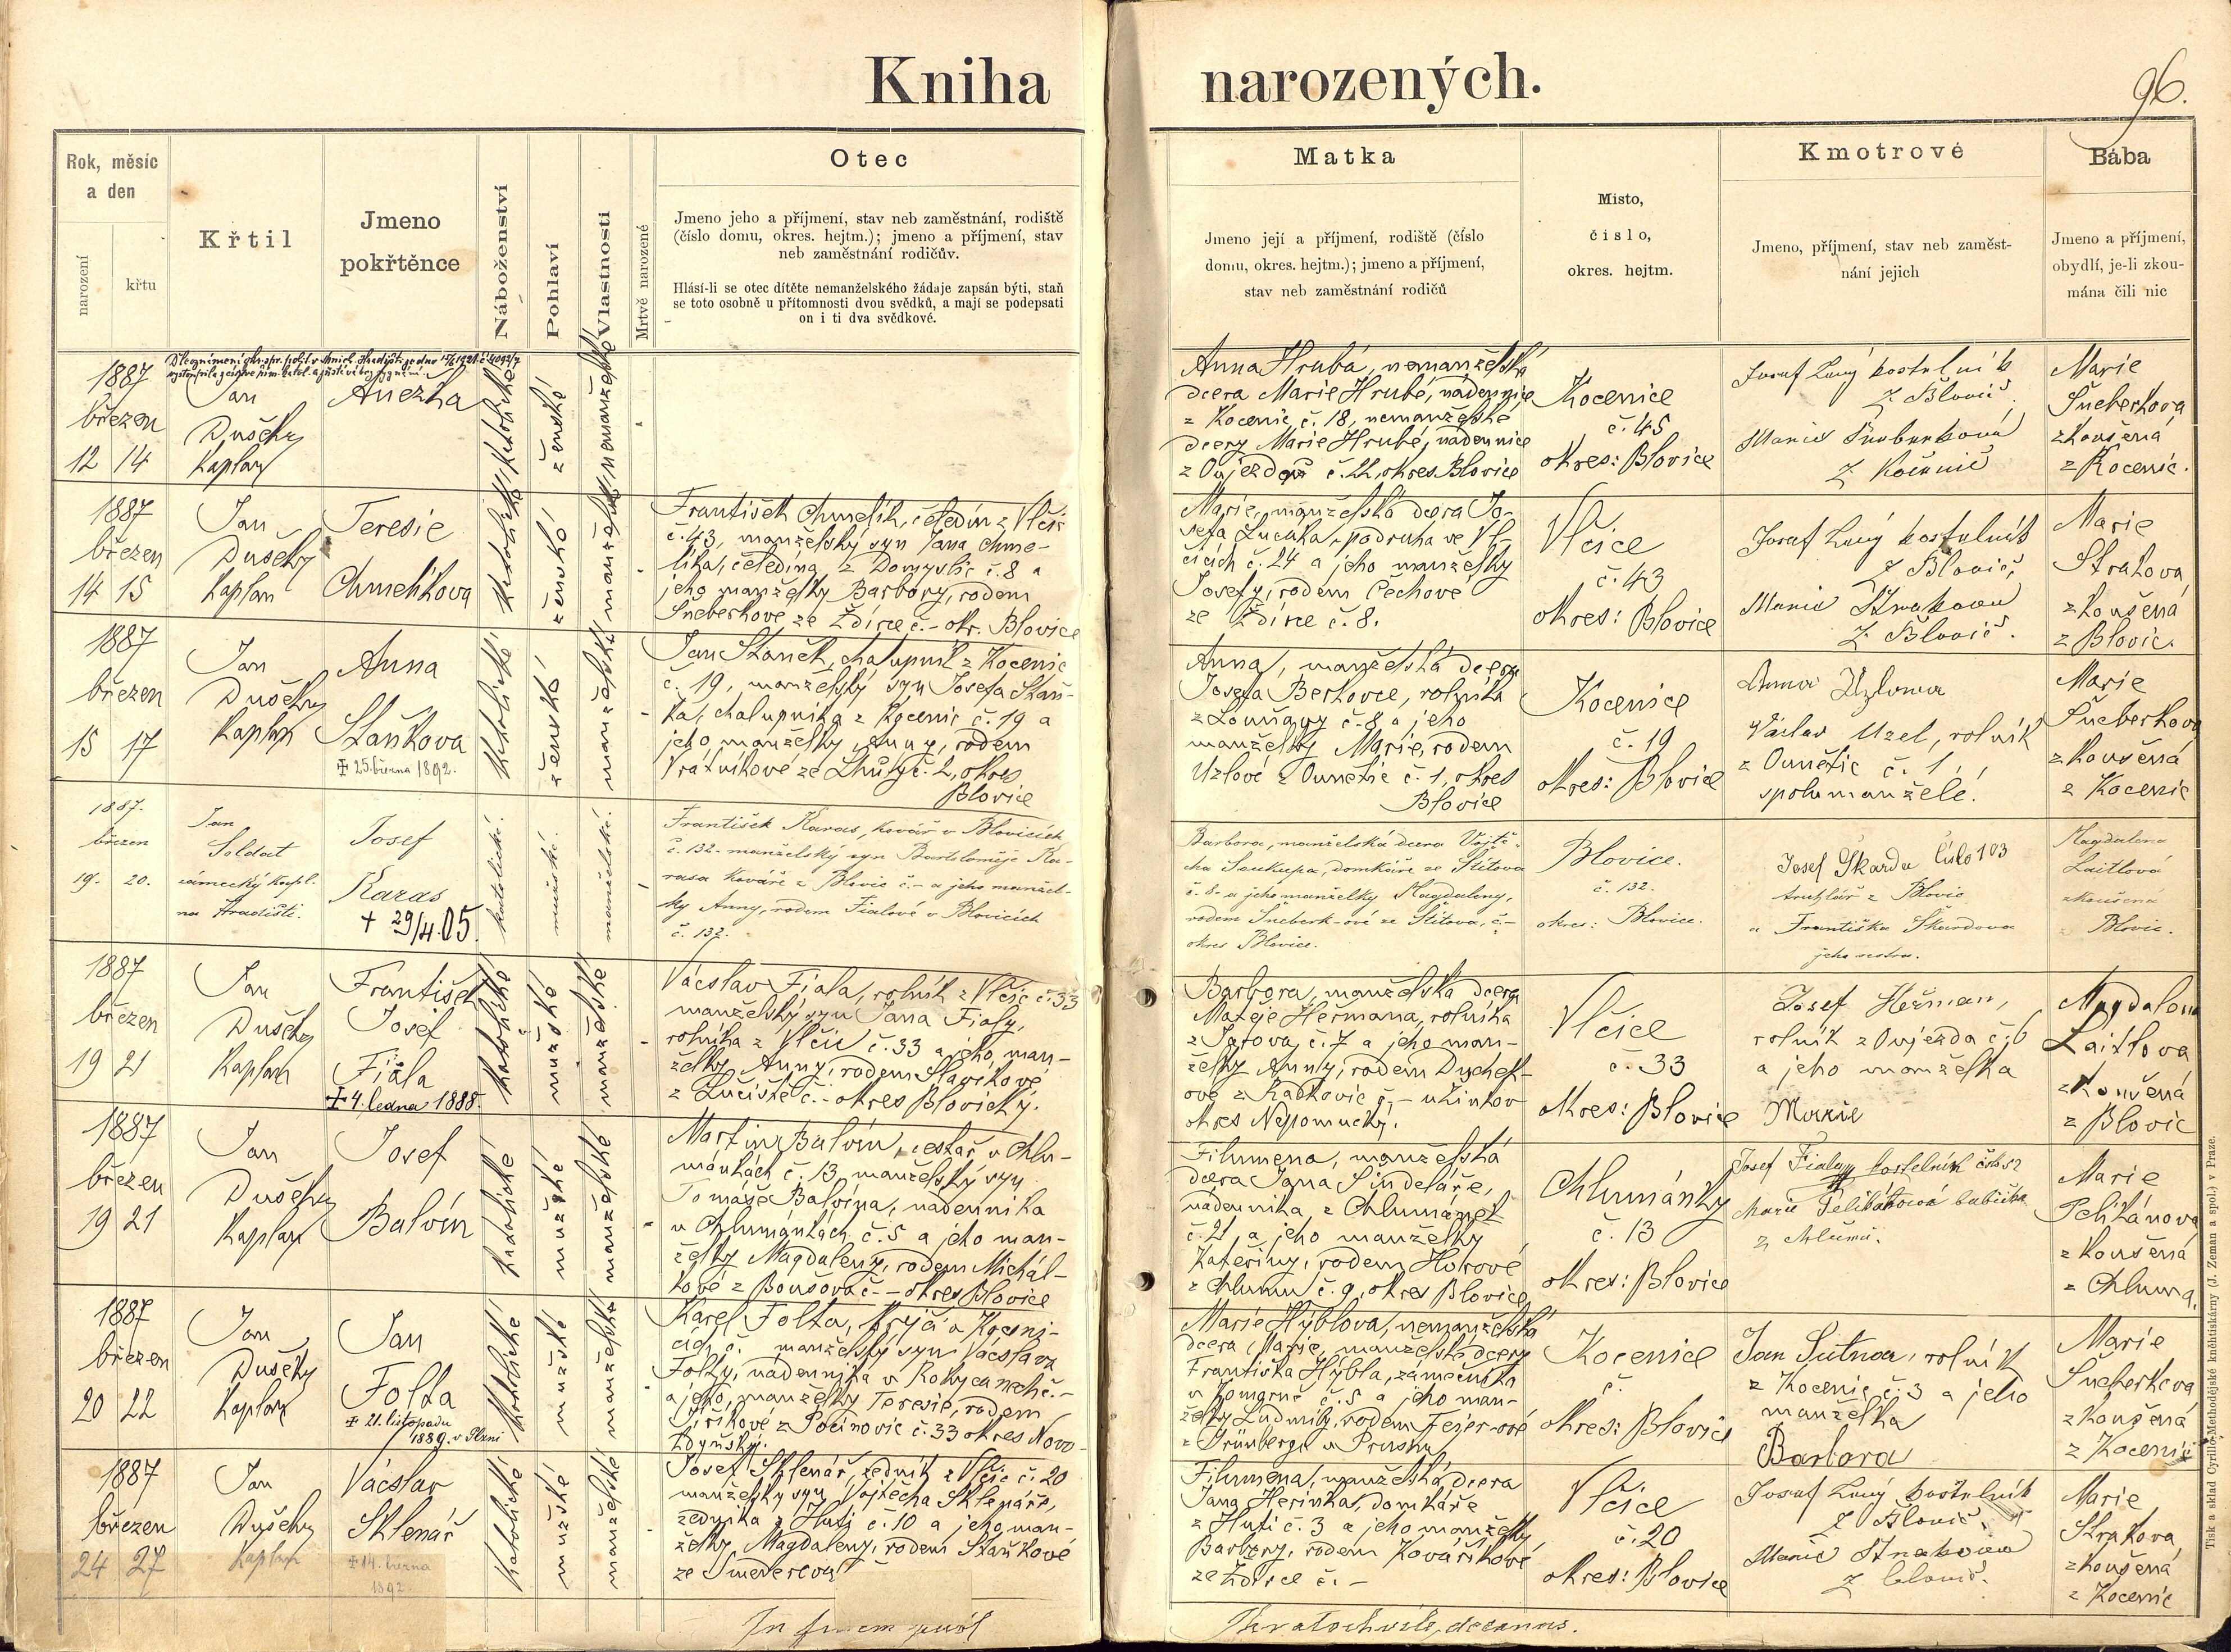 Kniha
narozených.
96.
Rok, měsíc
a den
narození
křtu
Křtil
Jmeno
pokřtěnce
Náboženství
Pohlaví
Vlastnosti
Mrtvě narozené
Otec
Jmeno jeho a příjmení, stav neb zaměstnání, rodiště
(číslo domu, okres. hejtm.); jmeno a příjmení, stav
neb zaměstnání rodičův.
Hlásí-li se otec dítěte nemanželského žádaje zapsán býti, staň
se toto osobně u přítomnosti dvou svědků, a mají se podepsati
on i ti dva svědkové.
Matka
Jmeno její a příjmení, rodiště (číslo
domu, okres. hejtm.); jmeno a příjmení,
stav neb zaměstnání rodičů
Místo,
číslo,
okres. hejtm.
Kmotrové
Jmeno, příjmení, stav neb zaměst-
nání jejich
Bába
Jmeno a příjmení,
obydlí, je-li zkou-
mána čili nic
1887
březen
12 14
Jan
Dušek
kaplan
Anežka
katolické
ženské
nemanželské
Anna Hrubá, nemanželská
dcera Marie Hrubé, nádennice
z Kocenic č. 18, nemanželské
dcery Marie Hrubé, nádennice
z Oujezda č. 22, okres Blovice
Kocenice
č. 45
okres: Blovice
Josef Nový kostelník
z Blovic.
Marie Šneberková
z Kocenic
Marie
Šneberkova
zkoušená
z Kocenic.
1887
březen
14 15
Jan
Dušek
kaplan
Teresie
Chmelíkova
katolické
ženské
manželské
František Chmelík, čeledín z Vlčic
č. 43, manželský syn Jana Chme-
líka, čeledína z Domyslic č. 8 a
jeho manželky Barbory, rodem
Šneberkove ze Ždírce č. - okr. Blovice
Marie, manželská dcera Jo-
sefa Lucáka, podruha ve Vl-
čicích č. 24 a jeho manželky
Josefy, rodem Čechové
ze Ždírce č. 8.
Vlčice
č. 43
okres: Blovice
Josef Nový kostelník
z Blovic,
Marie Strakova
z Blovic.
Marie
Strakova,
zkoušená
z Blovic.
1887
březen
15 17
Jan
Dušek
kaplan
Anna
Staňkova
✝ 25. března 1892.
katolické
ženské
manželské
Jan Staněk, chalupník z Kocenic
č. 19, manželský syn Josefa Staň-
ka, chalupníka z Kocenic č. 19 a
jeho manželky Anny, rodem
Vrátníkové ze Lhůty č. 2, okres
Blovice
Anna, manželská dcera
Josefa Berkovce, rolníka
z Louňový č. 8 a jeho
manželky Marie, rodem
Uzlové z Ounětic č. 1, okres
Blovice
Kocenice
č. 19
okres: Blovice
Anna Uzlova
Václav Uzel, rolník
z Ounětic č. 1,
spolumanželé.
Marie
Šneberkova
zkoušená
z Kocenic
1887.
březen
19. 20.
Jan
Soldát
zámecký kapl.
na Hradišti.
Josef
Karas
+ 29/4. 05.
katolické.
mužské.
manželské.
František Karas, kovář v Blovicích
č. 132. manželský syn Bartoloměje Ka-
rasa kováře z Blovic č. - a jeho manžel-
ky Anny, rodem Fialové v Blovicích
č. 132.
Barbora, manželská dcera Vojtě-
cha Soukupa, domkáře ze Štítova
č. 8 - a jeho manželky Magdaleny,
rodem Šneberk-ové ze Štítova, č. -
okres Blovice.
Blovice.
č. 132.
okres: Blovice.
Josef Skarda číslo 103
truhlář z Blovic
a Františka Skardova
jeho sestra.
Magdalena
Laitlová
zkoušená
z Blovic.
1887
březen
19 21
Jan
Dušek
kaplan
František
Josef
Fiala
✝ 4. ledna 1888.
katolické
mužské
manželské
Vácslav Fiala, rolník z Vlčic č. 33
manželský syn Jana Fialy,
rolníka z Vlčic č. 33 a jeho man-
želky Anny, rodem Slavíkové
z Lučiště č. - okres Blovický.
Barbora, manželská dcera
Matěje Heřmana, rolníka
z Jarova č. 7 a jeho man-
želky Anny, rodem Duchek-
ové z Radkovic č. - u Žinkov
okres Nepomucký.
Vlčice
č. 33
okres: Blovice
Josef Heřman,
rolník z Oujezda č. 6
a jeho manželka
Marie
Magdalena
Laitlova
zkoušená
z Blovic
1887
březen
19 21
Jan
Dušek
kaplan
Josef
Balvín
katolické
mužské
manželské
Martin Balvín, cestář v Chlu-
mánkách č. 13, manželský syn
Tomáše Balvína, nádenníka
v Chlumánkách č. 5 a jeho man-
želky Magdaleny, rodem Michál-
kové z Boušova č. - okres Blovice
Filumena, manželská
dcera Jana Šindeláře,
nádenníka z Chlumánek
č. 21, a jeho manželky
Kateřiny, rodem Horové
z Chlumu č. 9, okres Blovice
Chlumánky
č. 13
okres: Blovice
Josef Fiala kostelník číslo 52
Marie Pelikánová babička
z Chlumu.
Marie
Pelikánova
zkoušená
z Chluma.
1887
březen
20 22
Jan
Dušek
kaplan
Jan
Folta
✝ 21. listopadu
1889. v Plzni
katolické
mužské
manželské
Karel Folta, krejčí v Koceni-
cích č. manželský syn Vácslava
Folty, nádenníka v Rokycanech č. -
a jeho manželky Teresie, rodem
Jiříkové z Počínovic č. 33 okres Novo-
kdyňský.
Marie Hýblova, nemanželská
dcera Marie, manželské dcery
Františka Hýbla, zámečníka
v Komárně č. 5 a jeho man-
želky Ludmily, rodem Fejer-ové
z Grünbergu v Prusku,
Kocenice
č.
okres: Blovice
Jan Sutnar, rolník
z Kocenic č. 3 a jeho
manželka
Barbora
Marie
Šneberkova
zkoušená
z Kocenic
1887
březen
24 27
Jan
Dušek
kaplan
Vácslav
Sklenář
✝ 14. března
1892.
katolické
mužské
manželské
Josef Sklenář, zedník z Vlčic č. 20
manželský syn Vojtěcha Sklenáře,
zedníka z Huti č. 10 a jeho man-
želky Magdaleny, rodem Staňkové
ze Smederova
Filumena, manželská dcera
Jana Herinka, domkáře
z Huti č. 3 a jeho manželky
Barbory, rodem Kovaříkové
ze Ždírce č. -
Vlčice
č. 20
okres: Blovice
Josef Nový kostelník
z Blovic,
Marie Strakova
z Blovic.
Marie
Strakova,
zkoušená
z Kocenic
Kratochvíle, decanus.
Tisk a sklad Cyrillo-Methodějské kněhtiskárny (J. Zeman a spol.) v Praze.